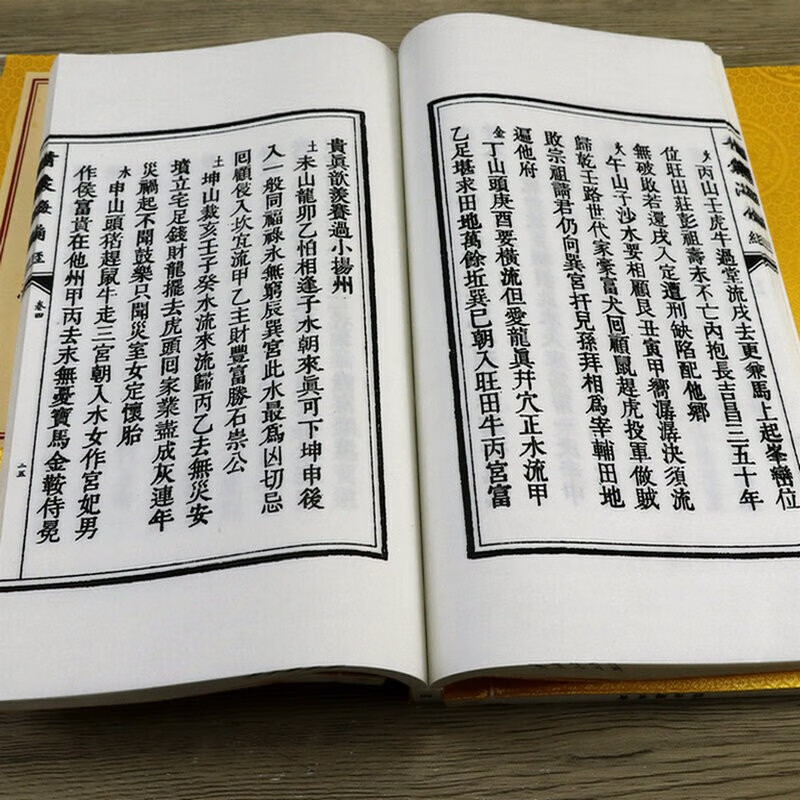 火丙山壬虎牛過堂流戌去更乘馬上起峯巒位
位旺出莊彭祖壽末不亡內抱長吉昌三五十年
無破敗若還戌入定遭刑缺陷配他鄉
火午山子沙水要相顧艮丑寅甲嚮潺潺決須流
歸乾壬路世代家豪富犬回顧鼠趕虎投軍做賊
敗宗祖謫君仍向巽宮扦兒孫拜相為宰輔田地
遍他府
金丁山頭庚酉要橫流但愛龍眞幷穴正水流甲
乙足堪求田地萬餘坵巽巳朝入旺田牛丙宮富
貴眞歆羨賽過小揚州
土未山龍卯乙怕相逢子水朝來眞可下坤申後
入一般同福祿永無窮辰巽宮此水最為凶切忌
回顧侵入坎宜流甲乙主財豐富勝石崇公
土坤山栽亥壬子癸水流來流歸丙乙去無災安
墳立宅足錢財龍擺去虎頭回家業盡成灰連年
災禍起不聞鼓樂只聞災室女定懷胎
水申山頭猪趕鼠牛走三宮朝入水女作宮妃男
作侯富貴在他州甲丙去未無憂寶馬金鞍侍冕
卷四
二五